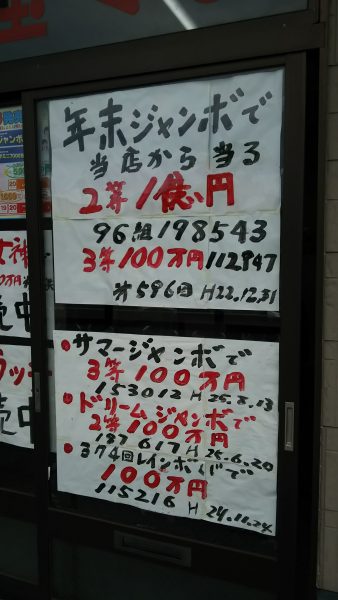 年末ジャンボで
当店から当る
2等1億円
96組198543
3等100万円112847
㐧596回 H22.12.31
•サマージャンボで
3等100万円
153012 H25.8.13
•ドリームジャンボで
2等100万円
187617 H25.6.20
•374回レインボーくじで
100万円
115216 H24.11.24
売中
売中